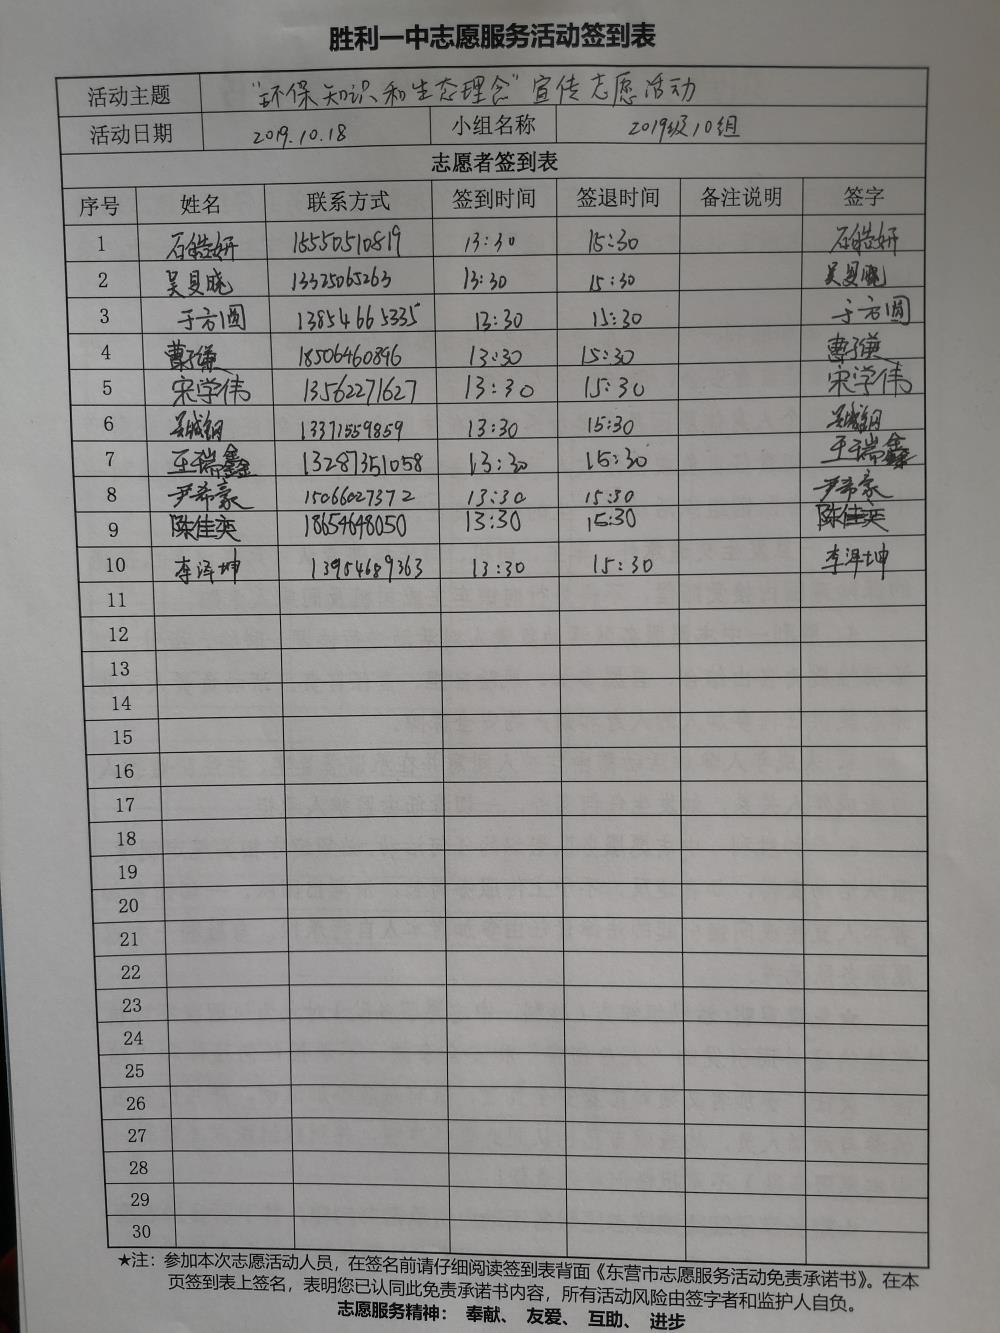 胜利一中志愿服务活动签到表
活动主题 “环保知识和生态理念”宣传志愿活动
活动日期 2019.10.18 小组名称 2019级10组
志愿者签到表
序号 姓名 联系方式 签到时间 签退时间 备注说明 签字
1 石皓妍 15550510819 13:30 15:30 石皓妍
2 吴昊晓 13325065263 13:30 15:30 吴昊晓
3 于方圆 13854665335 13:30 15:30 于方圆
4 曹子谦 18506460896 13:30 15:30 曹子谦
5 宋学伟 13562271627 13:30 15:30 宋学伟
6 13371559859 13:30 15:30
7 王瑞鑫 13287351058 13:30 15:30 王瑞鑫
8 尹希豪 15066027372 13:30 15:30 尹希豪
9 陈佳奕 18654648050 13:30 15:30 陈佳奕
10 李泽坤 13954689363 13:30 15:30 李泽坤
11
12
13
14
15
16
17
18
19
20
21
22
23
24
25
26
27
28
29
30
★注：参加本次志愿活动人员，在签名前请仔细阅读签到表背面《东营市志愿服务活动免责承诺书》。在本
页签到表上签名，表明您已认同此免责承诺书内容，所有活动风险由签字者和监护人自负。
志愿服务精神： 奉献、 友爱、 互助、 进步